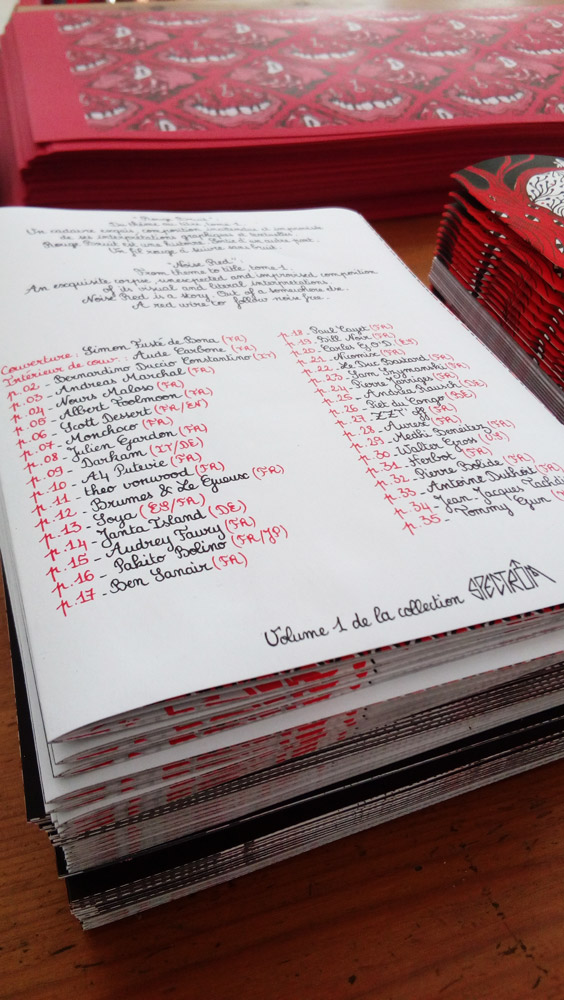 "Rouge Bruit"
Du thème au titre, tome 1.
Un cadavre exquis, composition inattendue et improvisée
de ses interprétations graphiques et textuelles.
Rouge Bruit est une histoire. Sortie d'un autre part.
Un fil rouge à suivre sans bruit.
"Noise Red".
From theme to title, tome 1.
An exquisite corpse, unexpected and improvised composition
of its visual and literal interpretations.
Noise Red is a story. Out of a somewhere else.
A red wire to follow noise free.
Couverture : Simon Fusté de Bona (FR)
Intérieur de couv. : Aude Carbone (FR)
p. 02 - Bernardino Duccio Constantino (IT)
p. 03 - Andreas Marchal (FR)
p. 04 - Nours Maloso (FR)
p. 05 - Albert Foolmoon (FR)
p. 06 - Scott Dessert (FR/ES)
p. 07 - Monchoco (FR)
p. 08 - Julien Gardon (FR)
p. 09 - Darkam (IT/DE)
p. 10 - A4 Putevie (FR)
p. 11 - theo vonwood (FR)
p. 12 - Brumes & Le Gueux (FR)
p. 13 - Soya (ES/FR)
p. 14 - Janta Island (DE)
p. 15 - Audrey Faury (FR)
p. 16 - Pakito Bolino (FR/JP)
p. 17 - Ben Sanair (FR)
p. 18 - Paul Cayet (FR)
p. 19 - Bill Noir
p. 20 - Carles G.O'D (ES)
p. 21 - Niomix (FR)
p. 22 - Le Duc
p. 23 - Sam Rymonski
p. 24 - Pierre Jarriges
p. 25 - Andréa Rausch (DE)
p. 26 - Piet du Congo
p. 27 - ZZT' off (FR)
p. 28 - Aurex (FR)
p. 29 - Medhi
p. 30 - Walter Gross (US)
p. 31 - Herbot (FR)
p. 32 - Pierre Bolide (FR)
p. 33 - Antoine Duthoit (FR)
p. 34 - Jean-Jacques
p. 35 - Tommy Gun
Volume 1 de la collection SPECTRÜM